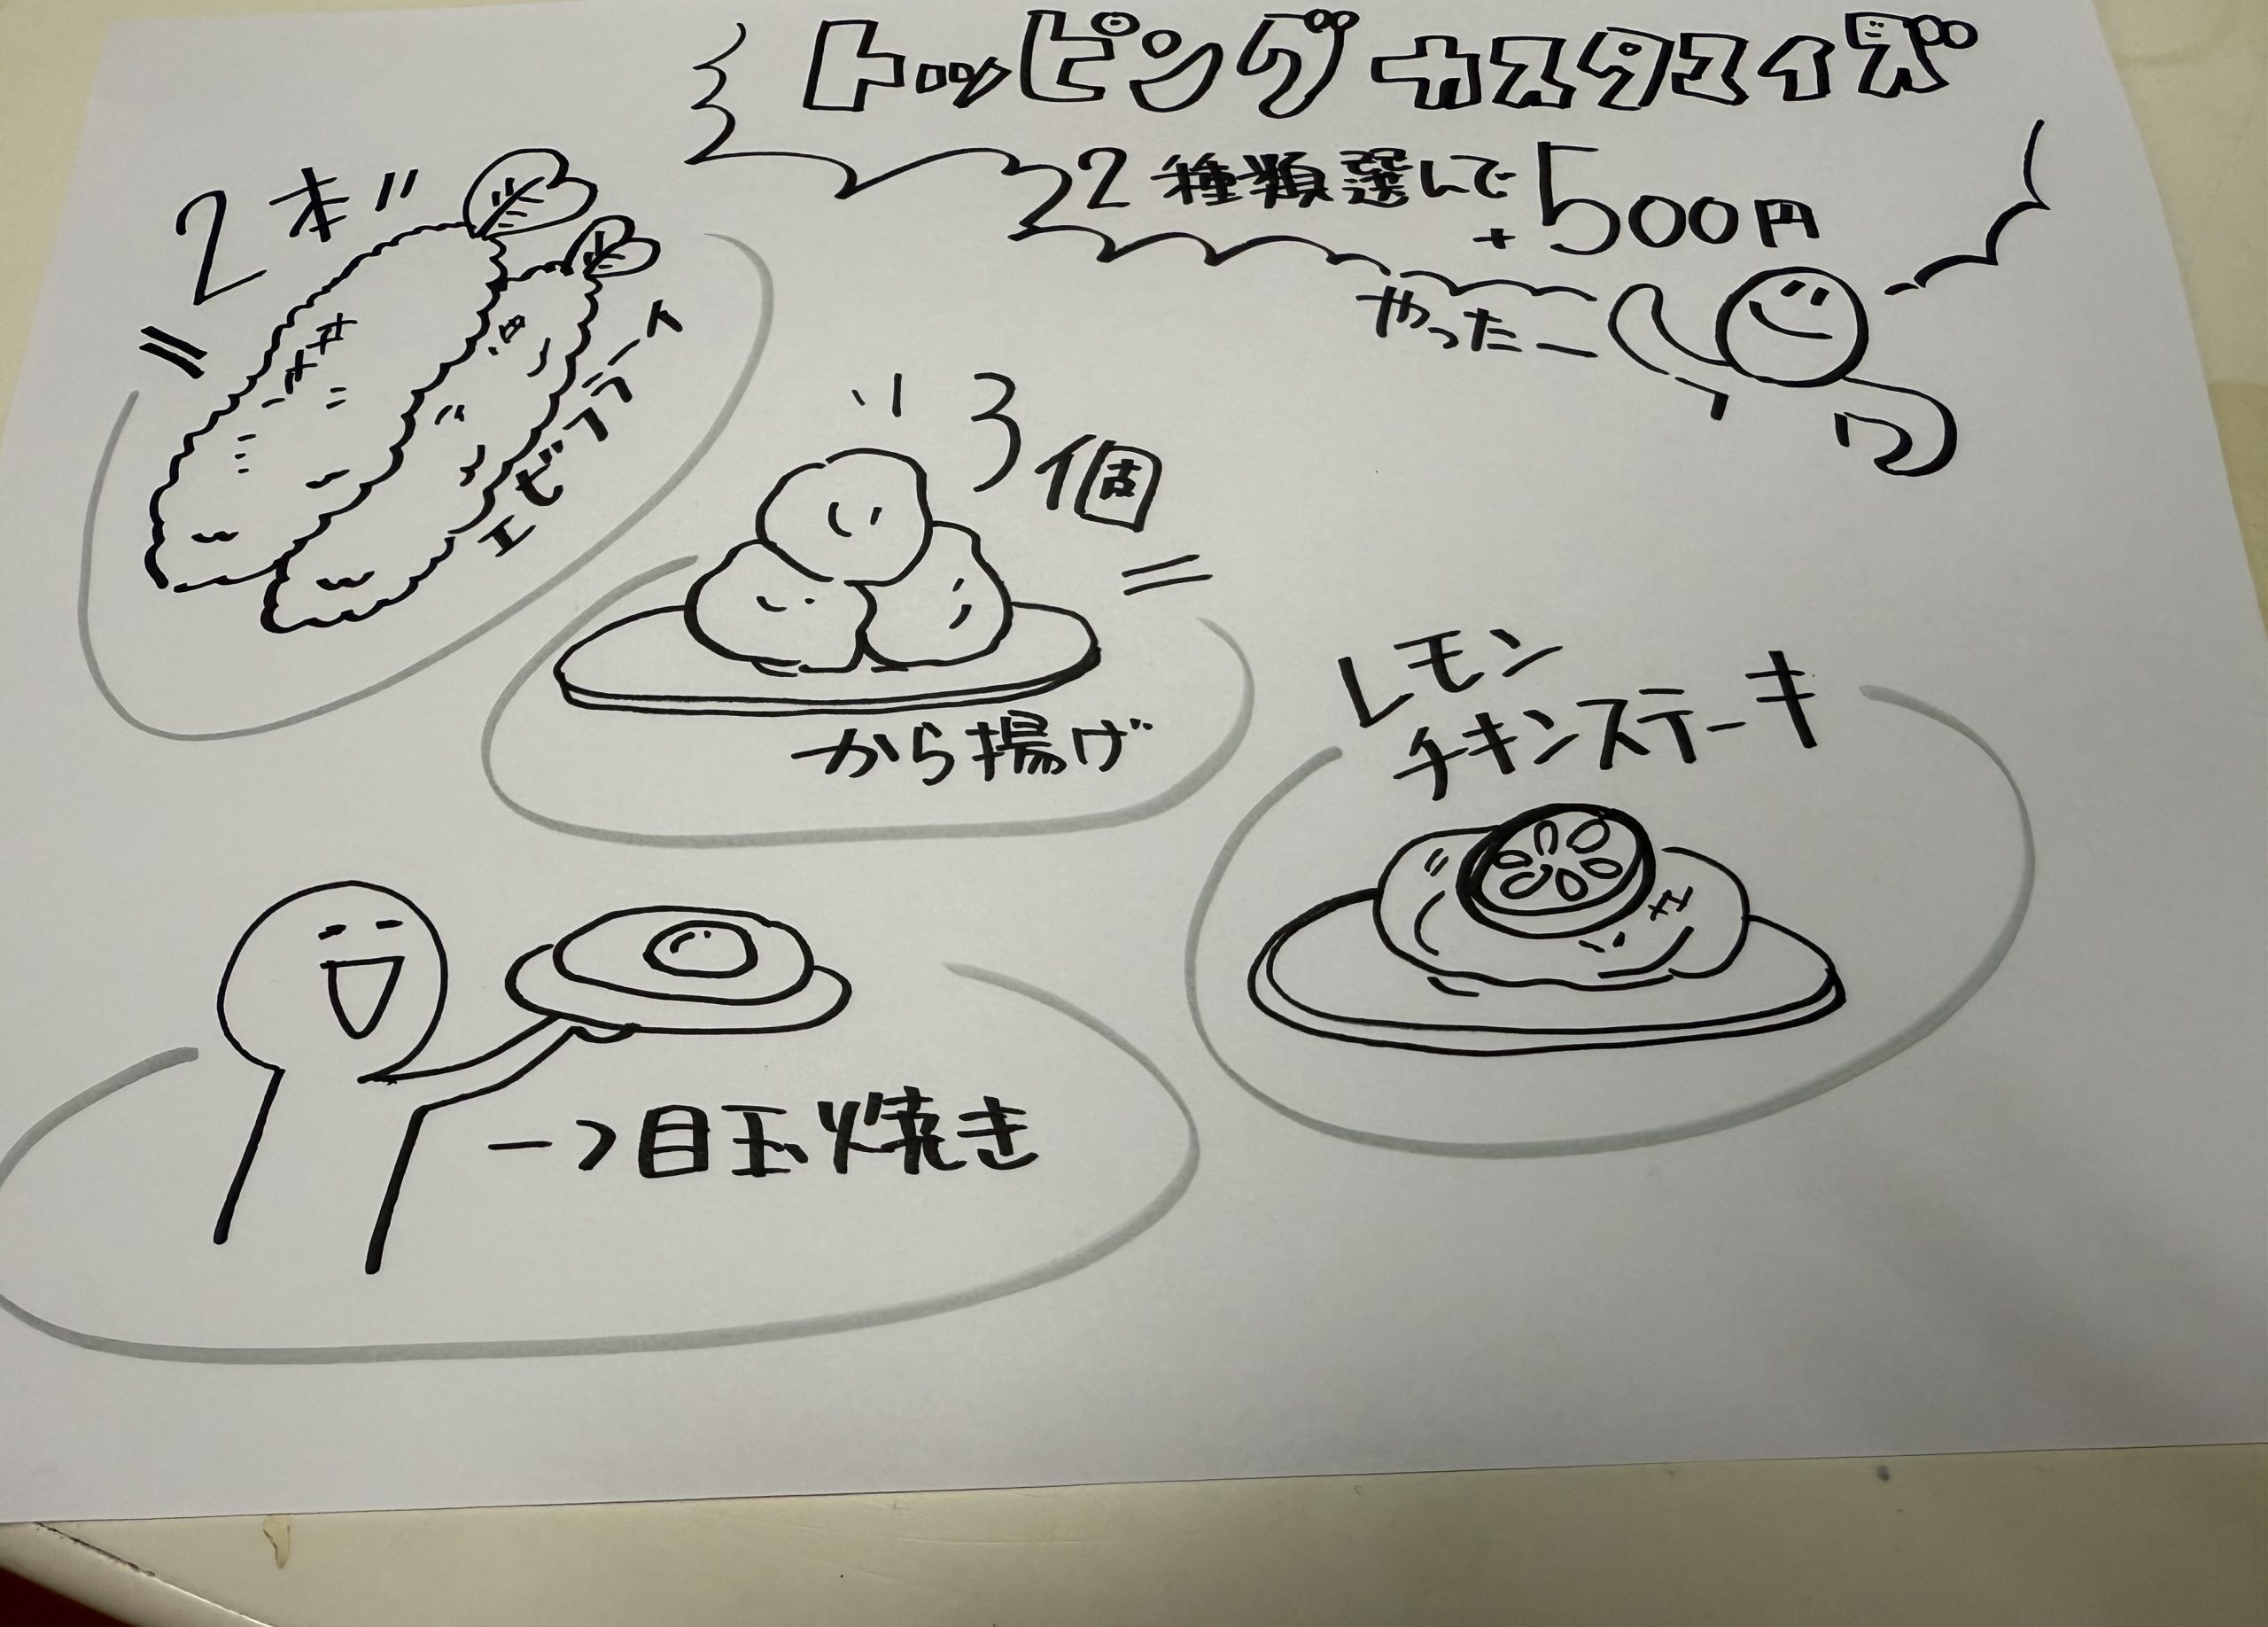 トッピングカスタマイズ
2種類選んで
+500円
やったー
2本
エビフライ
3個
から揚げ
レモン
チキンステーキ
一つ目玉焼き